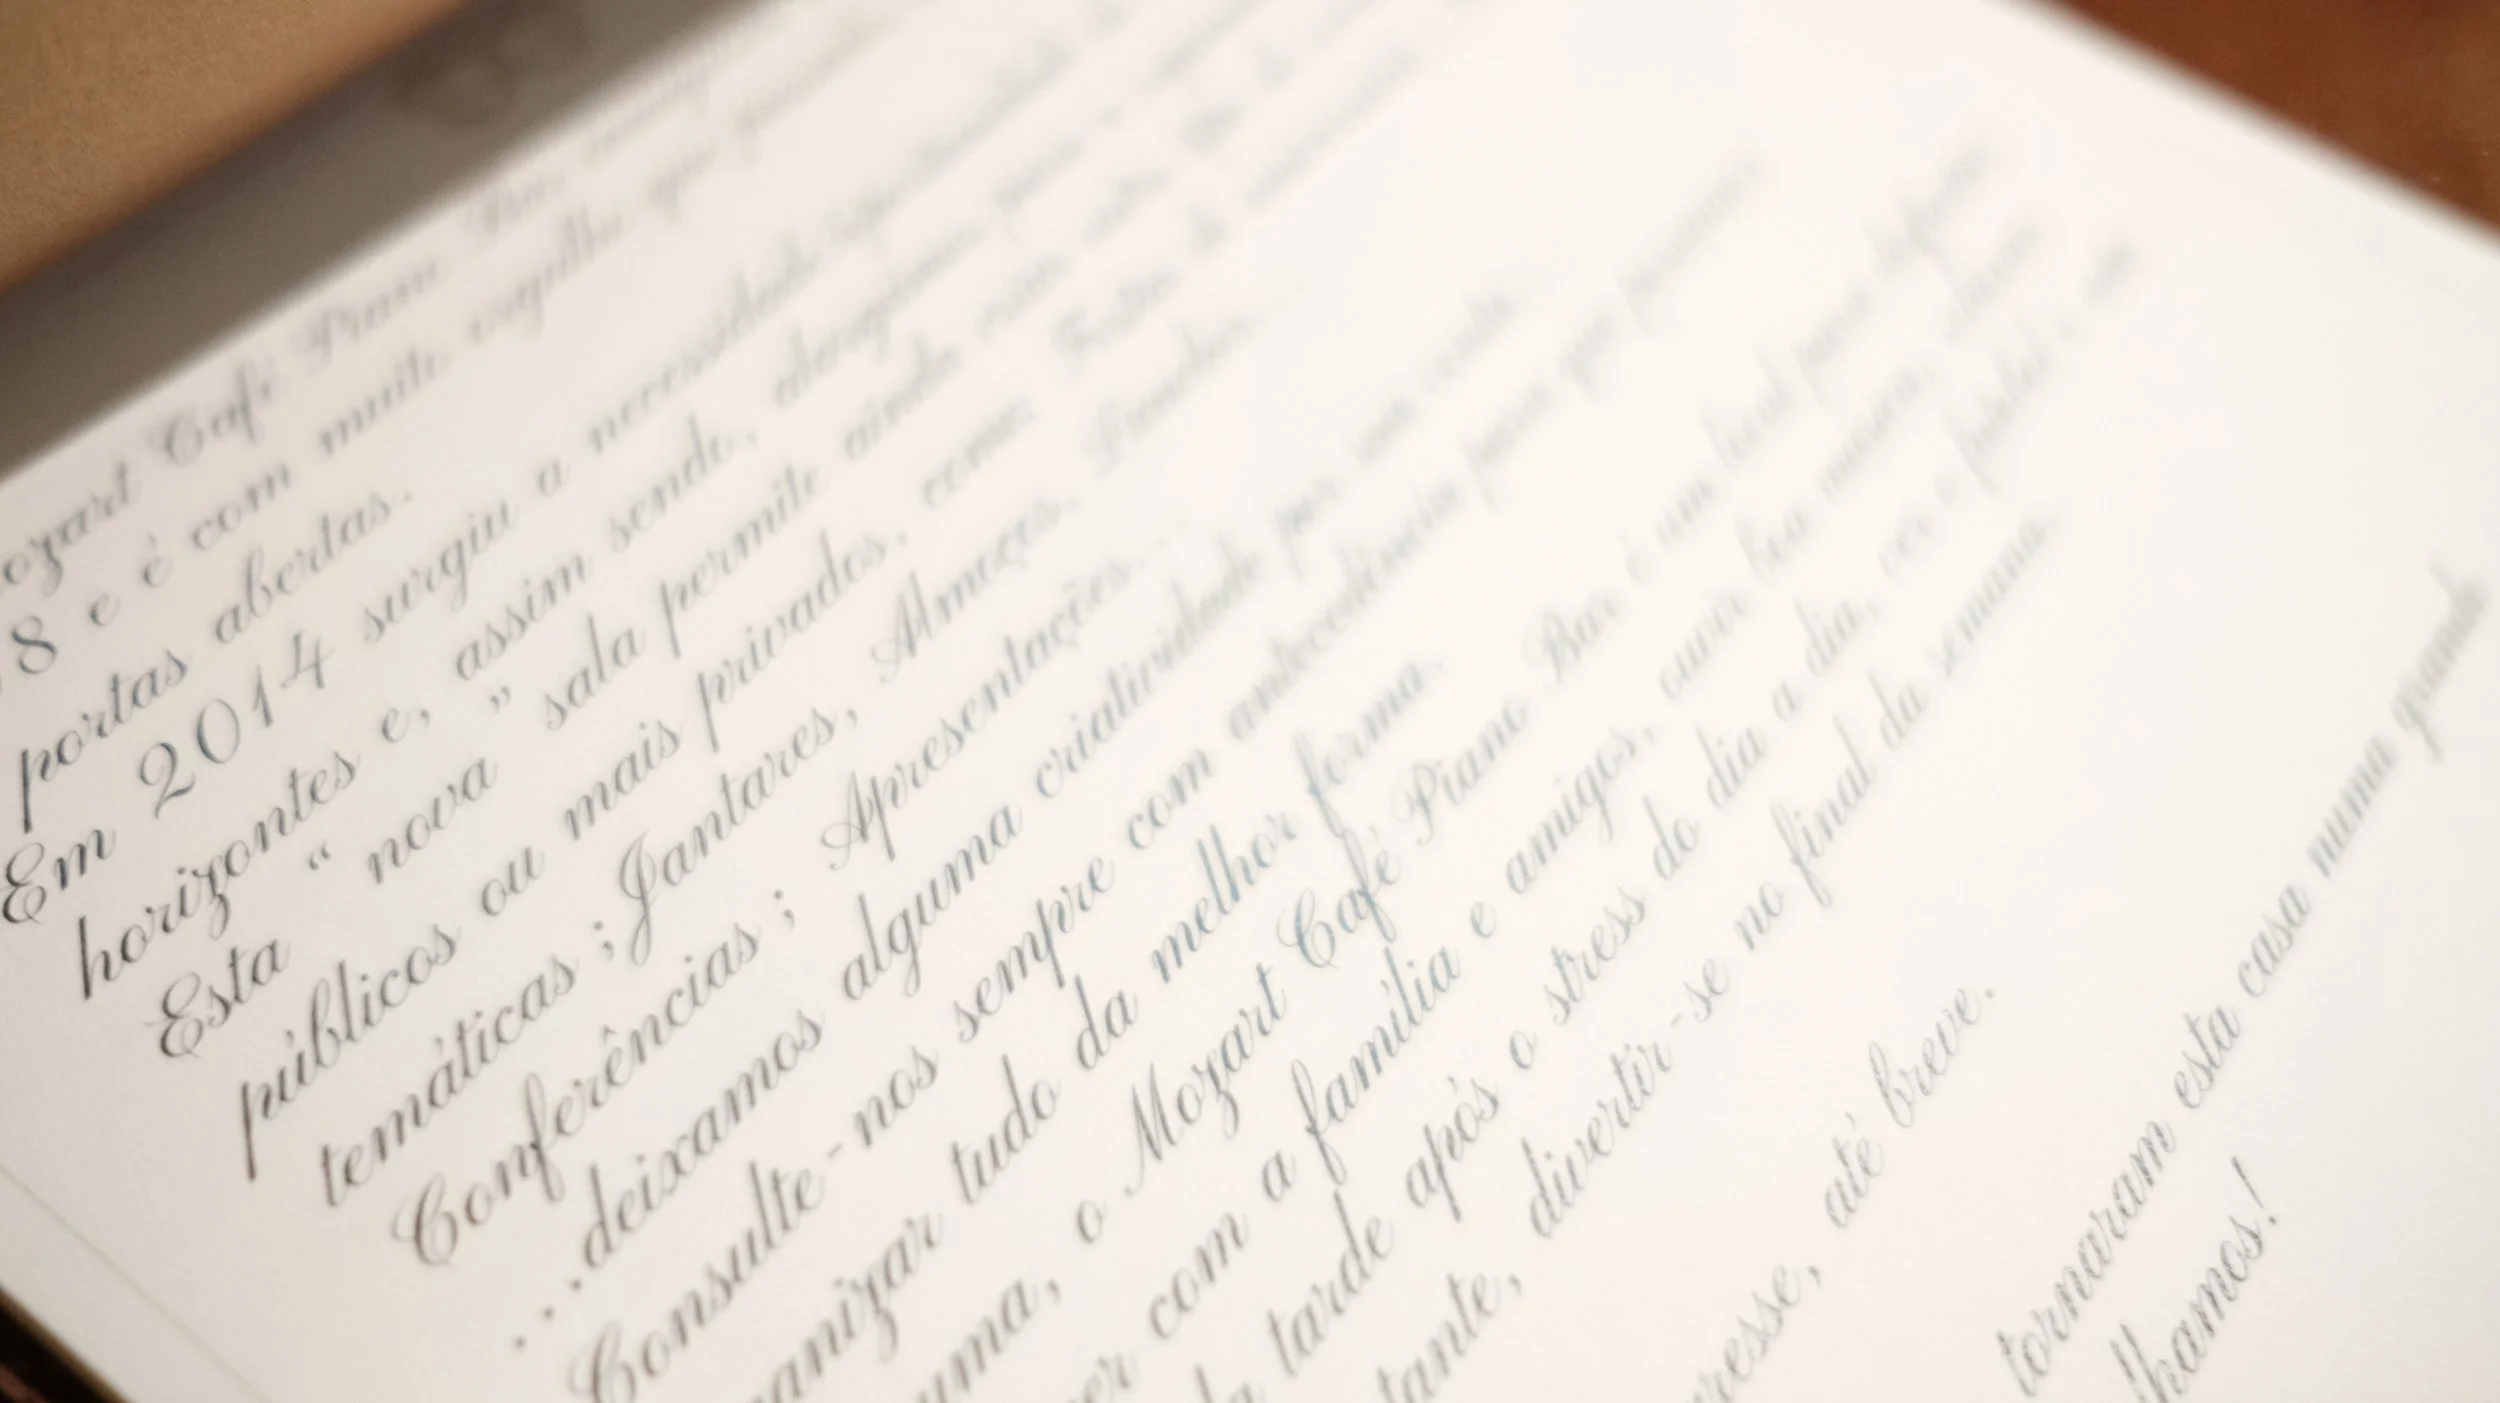 ozart Café Piano
8 e é com muito orgulho que
portas abertas.
Em 2014 surgiu a necessidade
horizontes e, assim sendo,
Esta “ nova ” sala permite ainda com
públicos ou mais privados, como: Festas de
temáticas ;Jantares, Almoços, Lanches,
Conferências ; Apresentações...
...deixamos alguma criatividade por sua conta.
Consulte-nos sempre com antecedência para que possamos
anizar tudo da melhor forma.
uma, o Mozart Café Piano Bar é um local para
er com a família e amigos, ouvir boa música,
tarde após o stress do dia a dia, ver o futebol e em
tante, divertir-se no final da semana.
resse, até breve.
tornaram esta casa numa grande
lhamos!